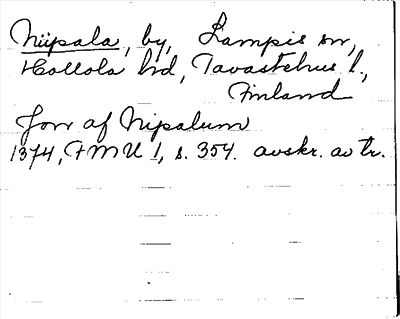 Niipala, by, Lampis sn,
Hollola hd, Tavastehus l.,
Finland
Jon af Nipalum
1374, FMU 1, s. 354. avskr. av tr.